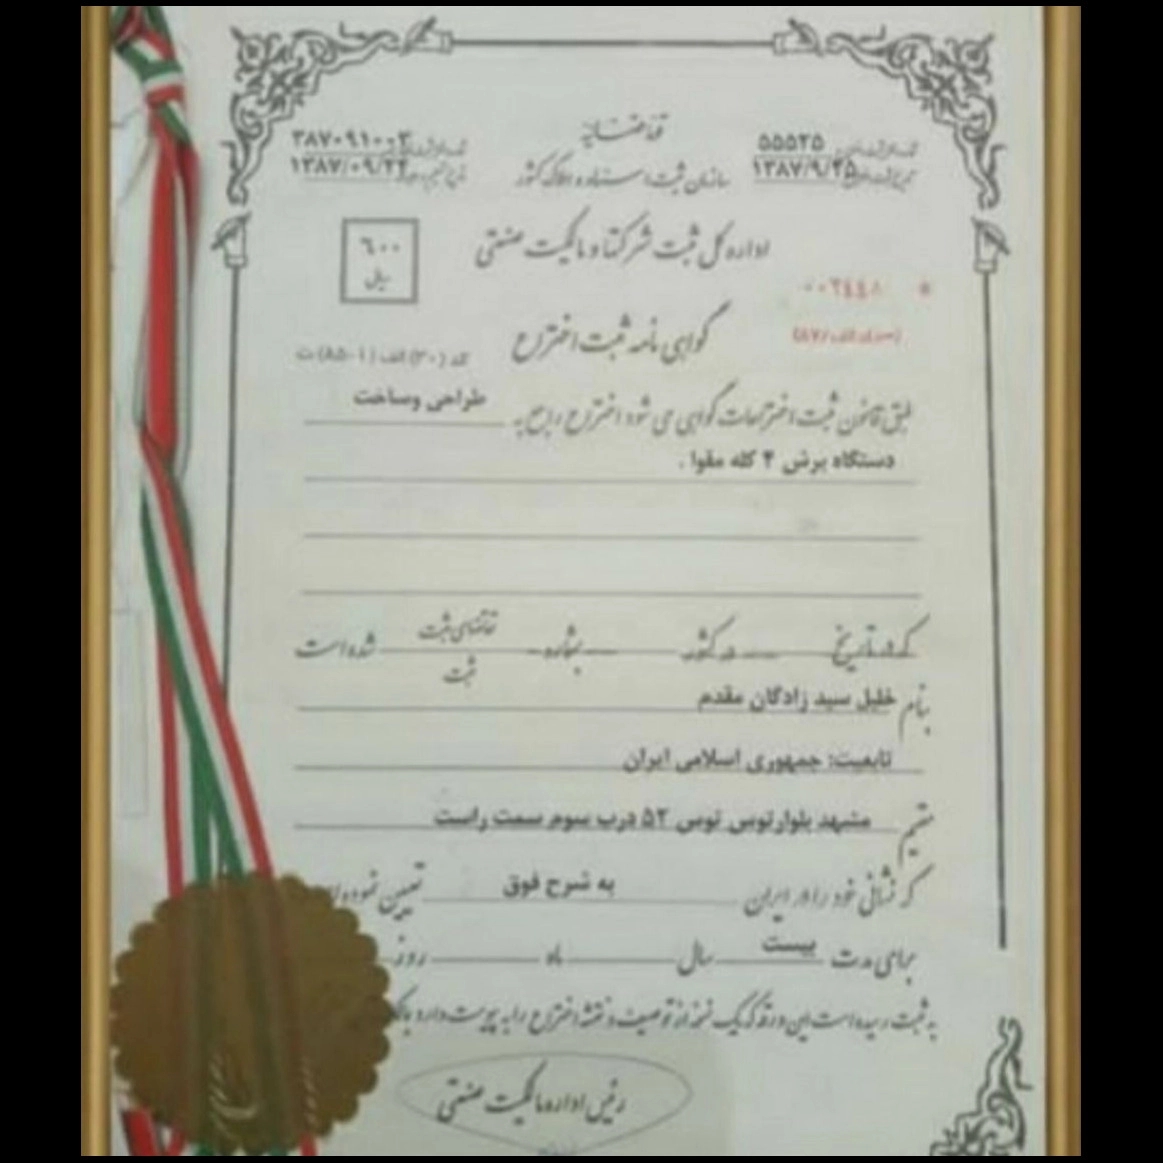 قوه قضائیه
سازمان ثبت اسناد و املاک کشور
۵۵۵۲۵
۱۳۸۷/۹/۲۵
۳۸۷۰۹۱۰۰۳
۱۳۸۷/۰۹/۲۴
اداره کل ثبت شرکتها و مالکیت صنعتی
۶۰۰
ریال
۰۰۲٤٤۸ *
گواهی نامه ثبت اختراع
کد (۳۰) الف (۱-۸۵) ت
طبق قانون ثبت اختراعات گواهی می شود اختراع راجع به طراحی وساخت
دستگاه برش ۴ کله مقوا .
که در تاریخ در کشور بشماره تقاضای ثبت شده است
ثبت
بنام خلیل سید زادگان مقدم
تابعیت: جمهوری اسلامی ایران
مقیم مشهد بلوارتوس توس ۵۲ درب سوم سمت راست
که نشانی خود را در ایران به شرح فوق تعیین نموده
برای مدت بیست سال ماه روز
به ثبت رسیده است این ورقه که یک نسخه از توصیف و نقشه اختراع را به پیوست دارد
رئیس اداره مالکیت صنعتی